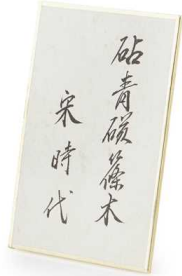 砧青磁篠木
宋時代